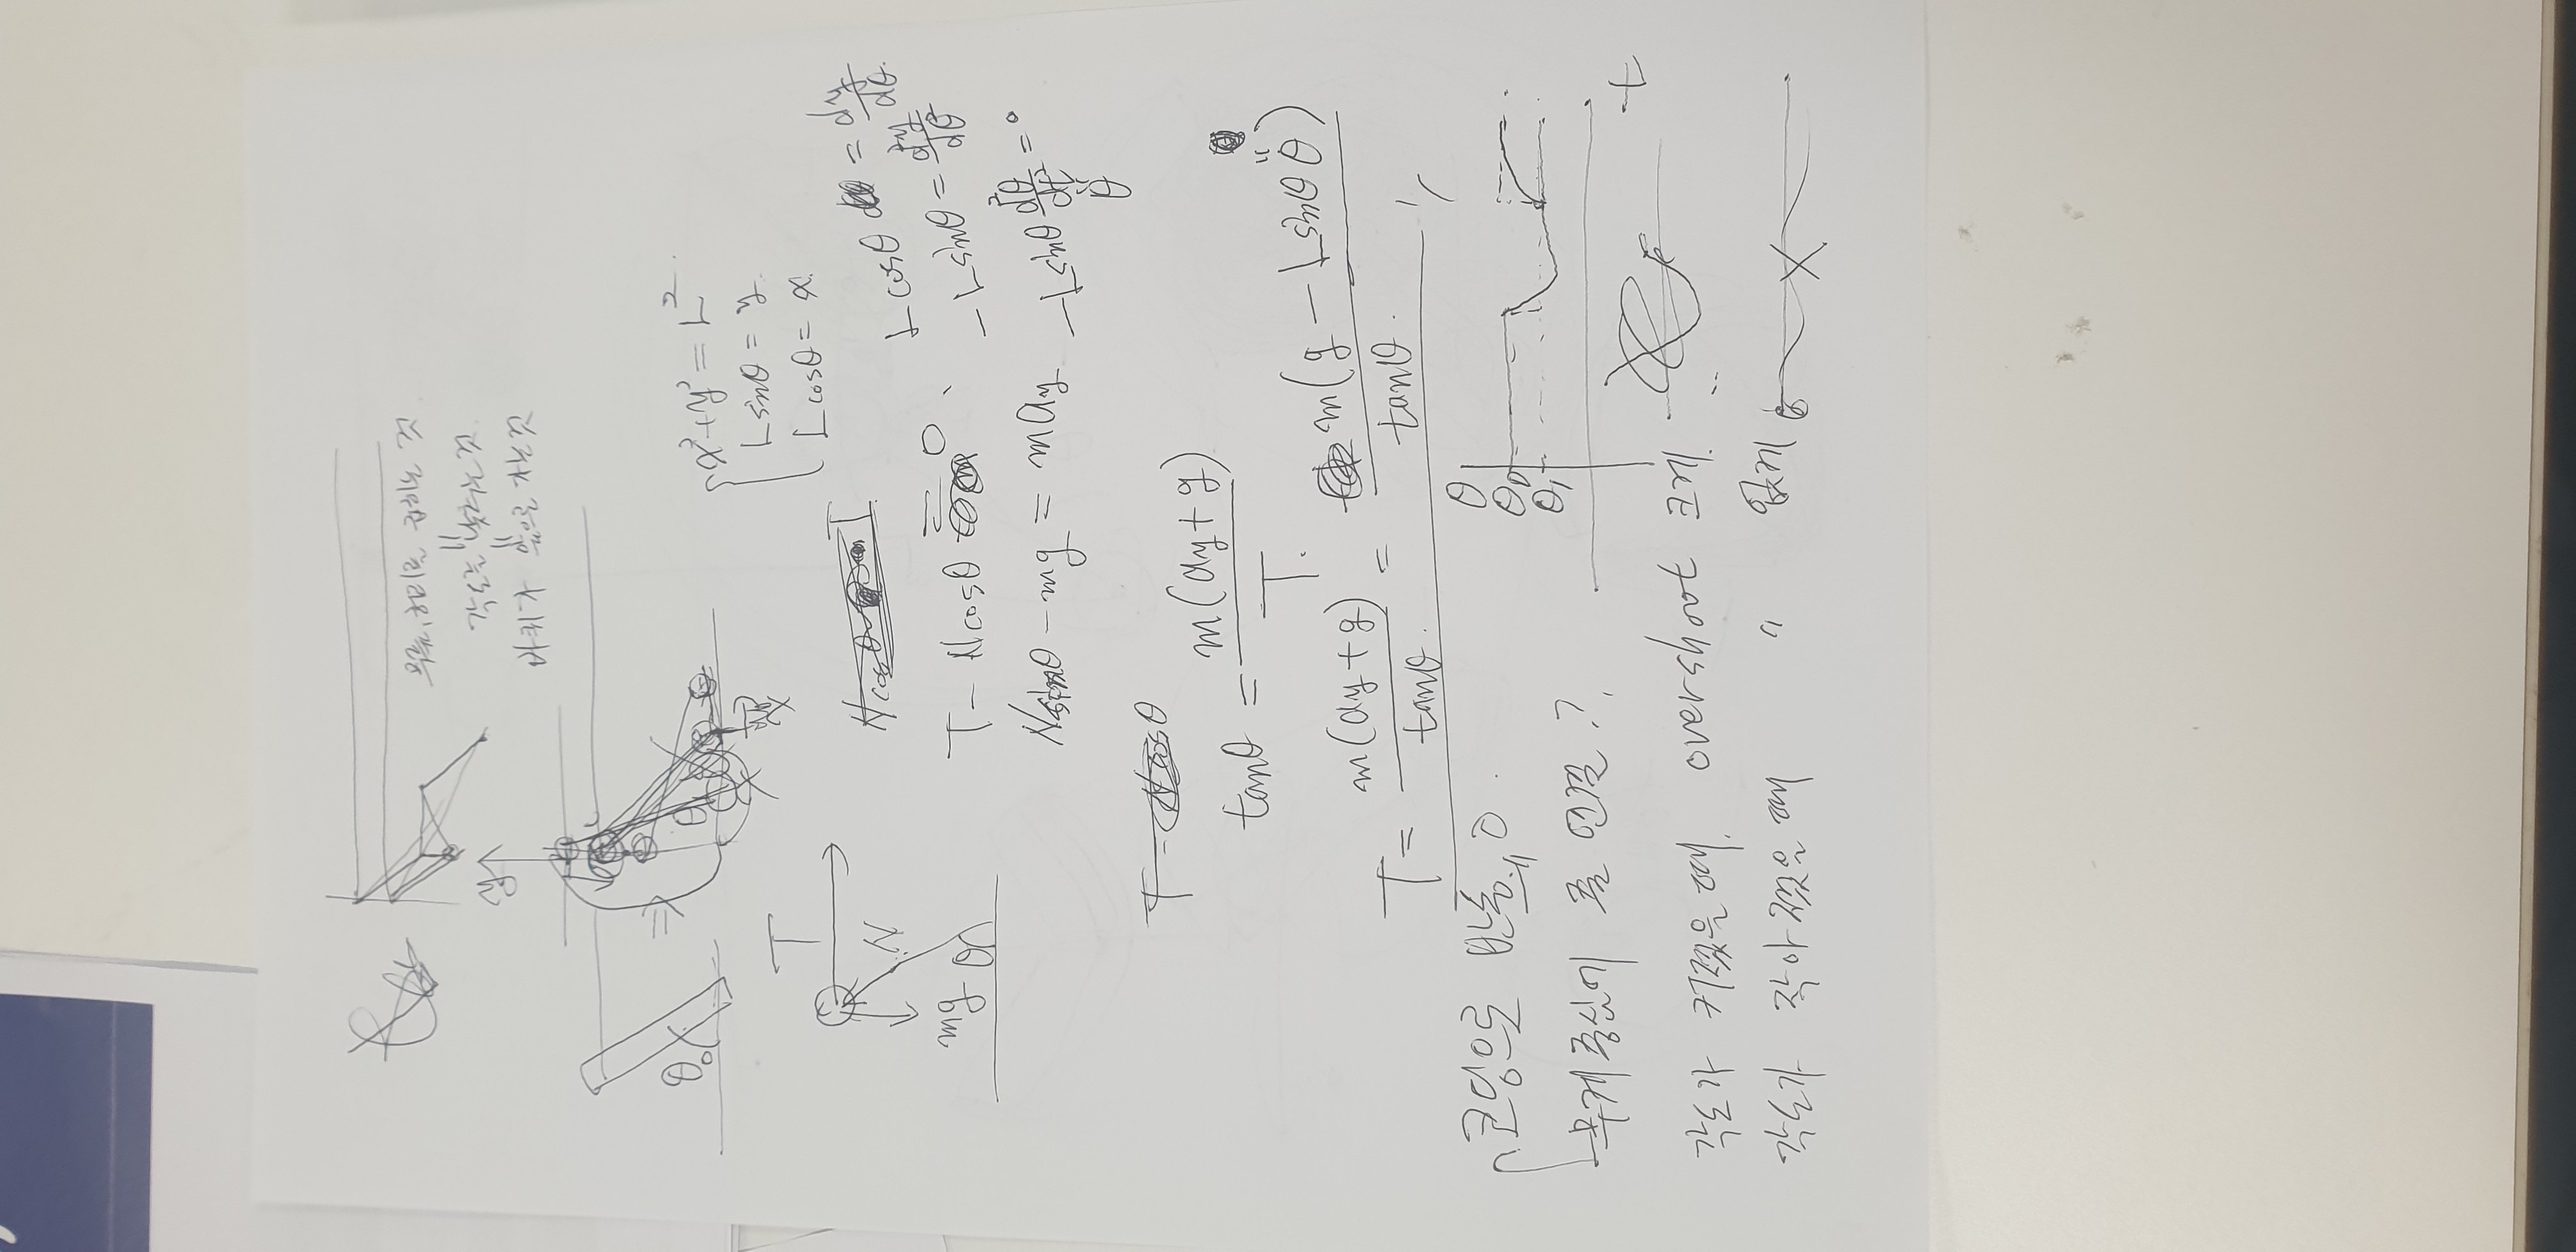 무릎, 허리를 굽히는 것
"
각도를 낮추는 것.
"
바퀴가 앞으로 가는 것
y
θ₀
θ
x
x²+y²=L²
Lsinθ=y
Lcosθ=x
T
N
mg
θ
T-Ncosθ=0
Nsinθ-mg=may
Lcosθ=dy/dθ
-Lsinθ=d²y/dθ²
-Lsinθ d²θ/dt²=
"
θ̈
T-Ncosθ
tanθ=m(ay+g)/T.
T=m(ay+g)/tanθ.=m(g-Lsinθθ̈)/tanθ.
코딩으로 반동 0.
무게중심에 줄 연결?
θ
θ₀
θ₁
t
각도가 커졌을때. overshoot 크게.
각도가 작아졌을때 " 없게